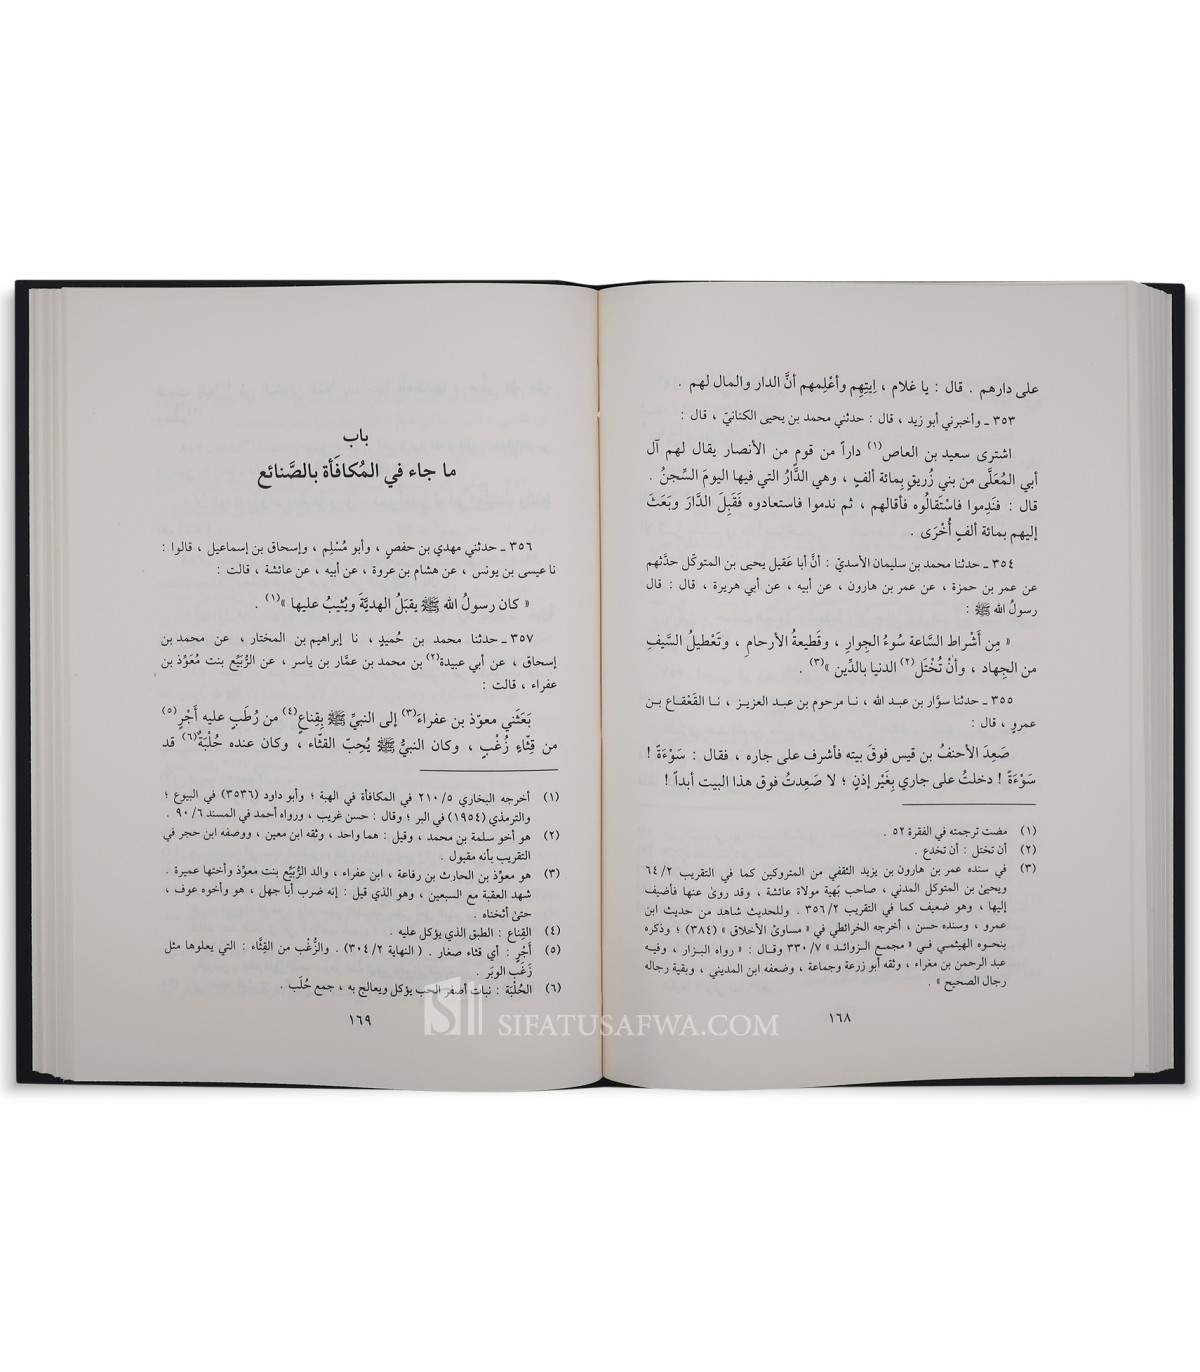 على دارهم . قال : يا غلام ، اِيتِهِم وأعْلِمهم أنَّ الدار والمال لهم .
٣٥٣ ـ وأخبرني أبو زيد ، قال : حدثني محمد بن يحيى الكنانيّ ، قال :
اشترى سعيد بن العاص(١) داراً من قوم من الأنصار يقال لهم آل
أبي المُعَلَّى من بني زُريق بِمائة ألفٍ ، وهي الدَّارُ التي فيها اليومَ السِّجنُ .
قال : فنَدِموا فاسْتَقالُوه فأقالهم ، ثم ندموا فاستعادوه فَقَبِلَ الدَّارَ وبَعَثَ
إليهم بمائة ألفٍ أُخْرَى .
٣٥٤ ـ حدثنا محمد بن سليمان الأسديّ : أنَّ أبا عَقيل يحيى بن المتوكّل حدَّثهم
عن عمر بن حمزة ، عن عمر بن هارون ، عن أبيه ، عن أبي هريرة ، قال : قال
رسولُ الله ﷺ :
« مِن أَشْراط السَّاعة سُوءُ الجِوارِ ، وقَطيعةُ الأرحامِ ، وتَعْطيلُ السَّيفِ
من الجِهاد ، وأنْ تُخْتَل(٢) الدنيا بالدِّين »(٣) .
٣٥٥ ـ حدثنا سوَّار بن عبد الله ، نـا مرحوم بن عبد العزيـز ، نـا القَعْقـاع بـن
عمرو ، قال :
صَعِدَ الأحنفُ بن قيس فوقَ بيته فأشرف على جاره ، فقال : سَوْءَةً !
سَوْءَةً ! دخلتُ على جاري بِغَيْر إذنٍ ؛ لا صَعِدتُ فوق هذا البيت أبداً !
(١) مضت ترجمته في الفقرة ٥٢ .
(٢) أن تختل : أن تخدع .
(٣) في سنده عمر بن هارون بن يزيد الثقفي من المتروكين كما في التقريب ٦٤/٢
ويحيىٰ بن المتوكل المدني ، صاحب بَهية مولاة عائشة ، وقد روىٰ عنها فأضيف
إليها ، وهو ضعيف كما في التقريب ٣٥٦/٢ . وللحديث شاهد من حديث ابن
عمرو ، وسنده حسن ، أخرجه الخرائطي في « مساوئ الأخلاق » (٣٨٤) ؛ وذكره
بنحـوه الهيثمـي فـي « مجمـع الـزوائـد » ٣٣٠/٧ وقـال : « رواه البـزار ، وفيـه
عبد الرحمن بن مغراء ، وثقه أبو زرعة وجماعة ، وضعفه ابن المديني ، وبقية رجاله
رجال الصحيح » .
١٦٨
باب
ما جاء في المُكافَأة بالصَّنائع
٣٥٦ ـ حدثني مهدي بن حفصٍ ، وأبو مُسْلِم ، وإسحاق بن إسماعيل ، قالوا :
نا عيسى بن يونس ، عن هشام بن عروة ، عن أبيه ، عن عائشة ، قالت :
« كان رسولُ الله ﷺ يقبَلُ الهديَّةَ ويُثيبُ عليها »(١) .
٣٥٧ ـ حدثنا محمد بن حُميدٍ ، نا إبراهيم بن المختار ، عن محمد بن
إسحاق ، عن أبي عبيدة(٢) بن محمد بن عمَّار بن ياسر ، عن الرُّبَيِّع بنت مُعَوِّذ بن
عفراء ، قالت :
بَعَثَني معوّذ بن عفراءَ(٣) إلى النبيِّ ﷺ بِقِناعٍ(٤) من رُطَبٍ عليه أَجْرٍ(٥)
من قِثَّاءٍ زُغْبٍ ، وكان النبيُّ ﷺ يُحِبّ القثَّاء ، وكان عنده حُلْبَةٌ(٦) قد
(١) أخرجه البخاري ٢١٠/٥ في المكافأة في الهبة ؛ وأبو داود (٣٥٣٦) في البيوع ؛
والترمذي (١٩٥٤) في البر ؛ وقال : حسن غريب ، ورواه أحمد في المسند ٩٠/٦ .
(٢) هو أخو سلمة بن محمد ، وقيل : هما واحد ، وثقه ابن معين ، ووصفه ابن حجر في
التقريب بأنه مقبول .
(٣) هو معوِّذ بن الحارث بن رفاعة ، ابن عفراء ، والد الرُّبَيِّع بنت معوِّذ وأختها عميرة .
شهد العقبة مع السبعين ، وهو الذي قيل : إنه ضرب أبا جهل ، هو وأخوه عوف ،
حتىٰ أثخناه .
(٤) القِناع : الطبق الذي يؤكل عليه .
(٥) أَجْرٍ : أي قثاء صغار . ( النهاية ٣٠٤/٢ ) . والزُّغْب من القِثَّاء : التي يعلوها مثل
زَغَب الوبَر .
(٦) الحُلْبَة : نبات أصفر الحب يؤكل ويعالج به ، جمع حُلَب .
١٦٩
SIFATUSAFWA.COM